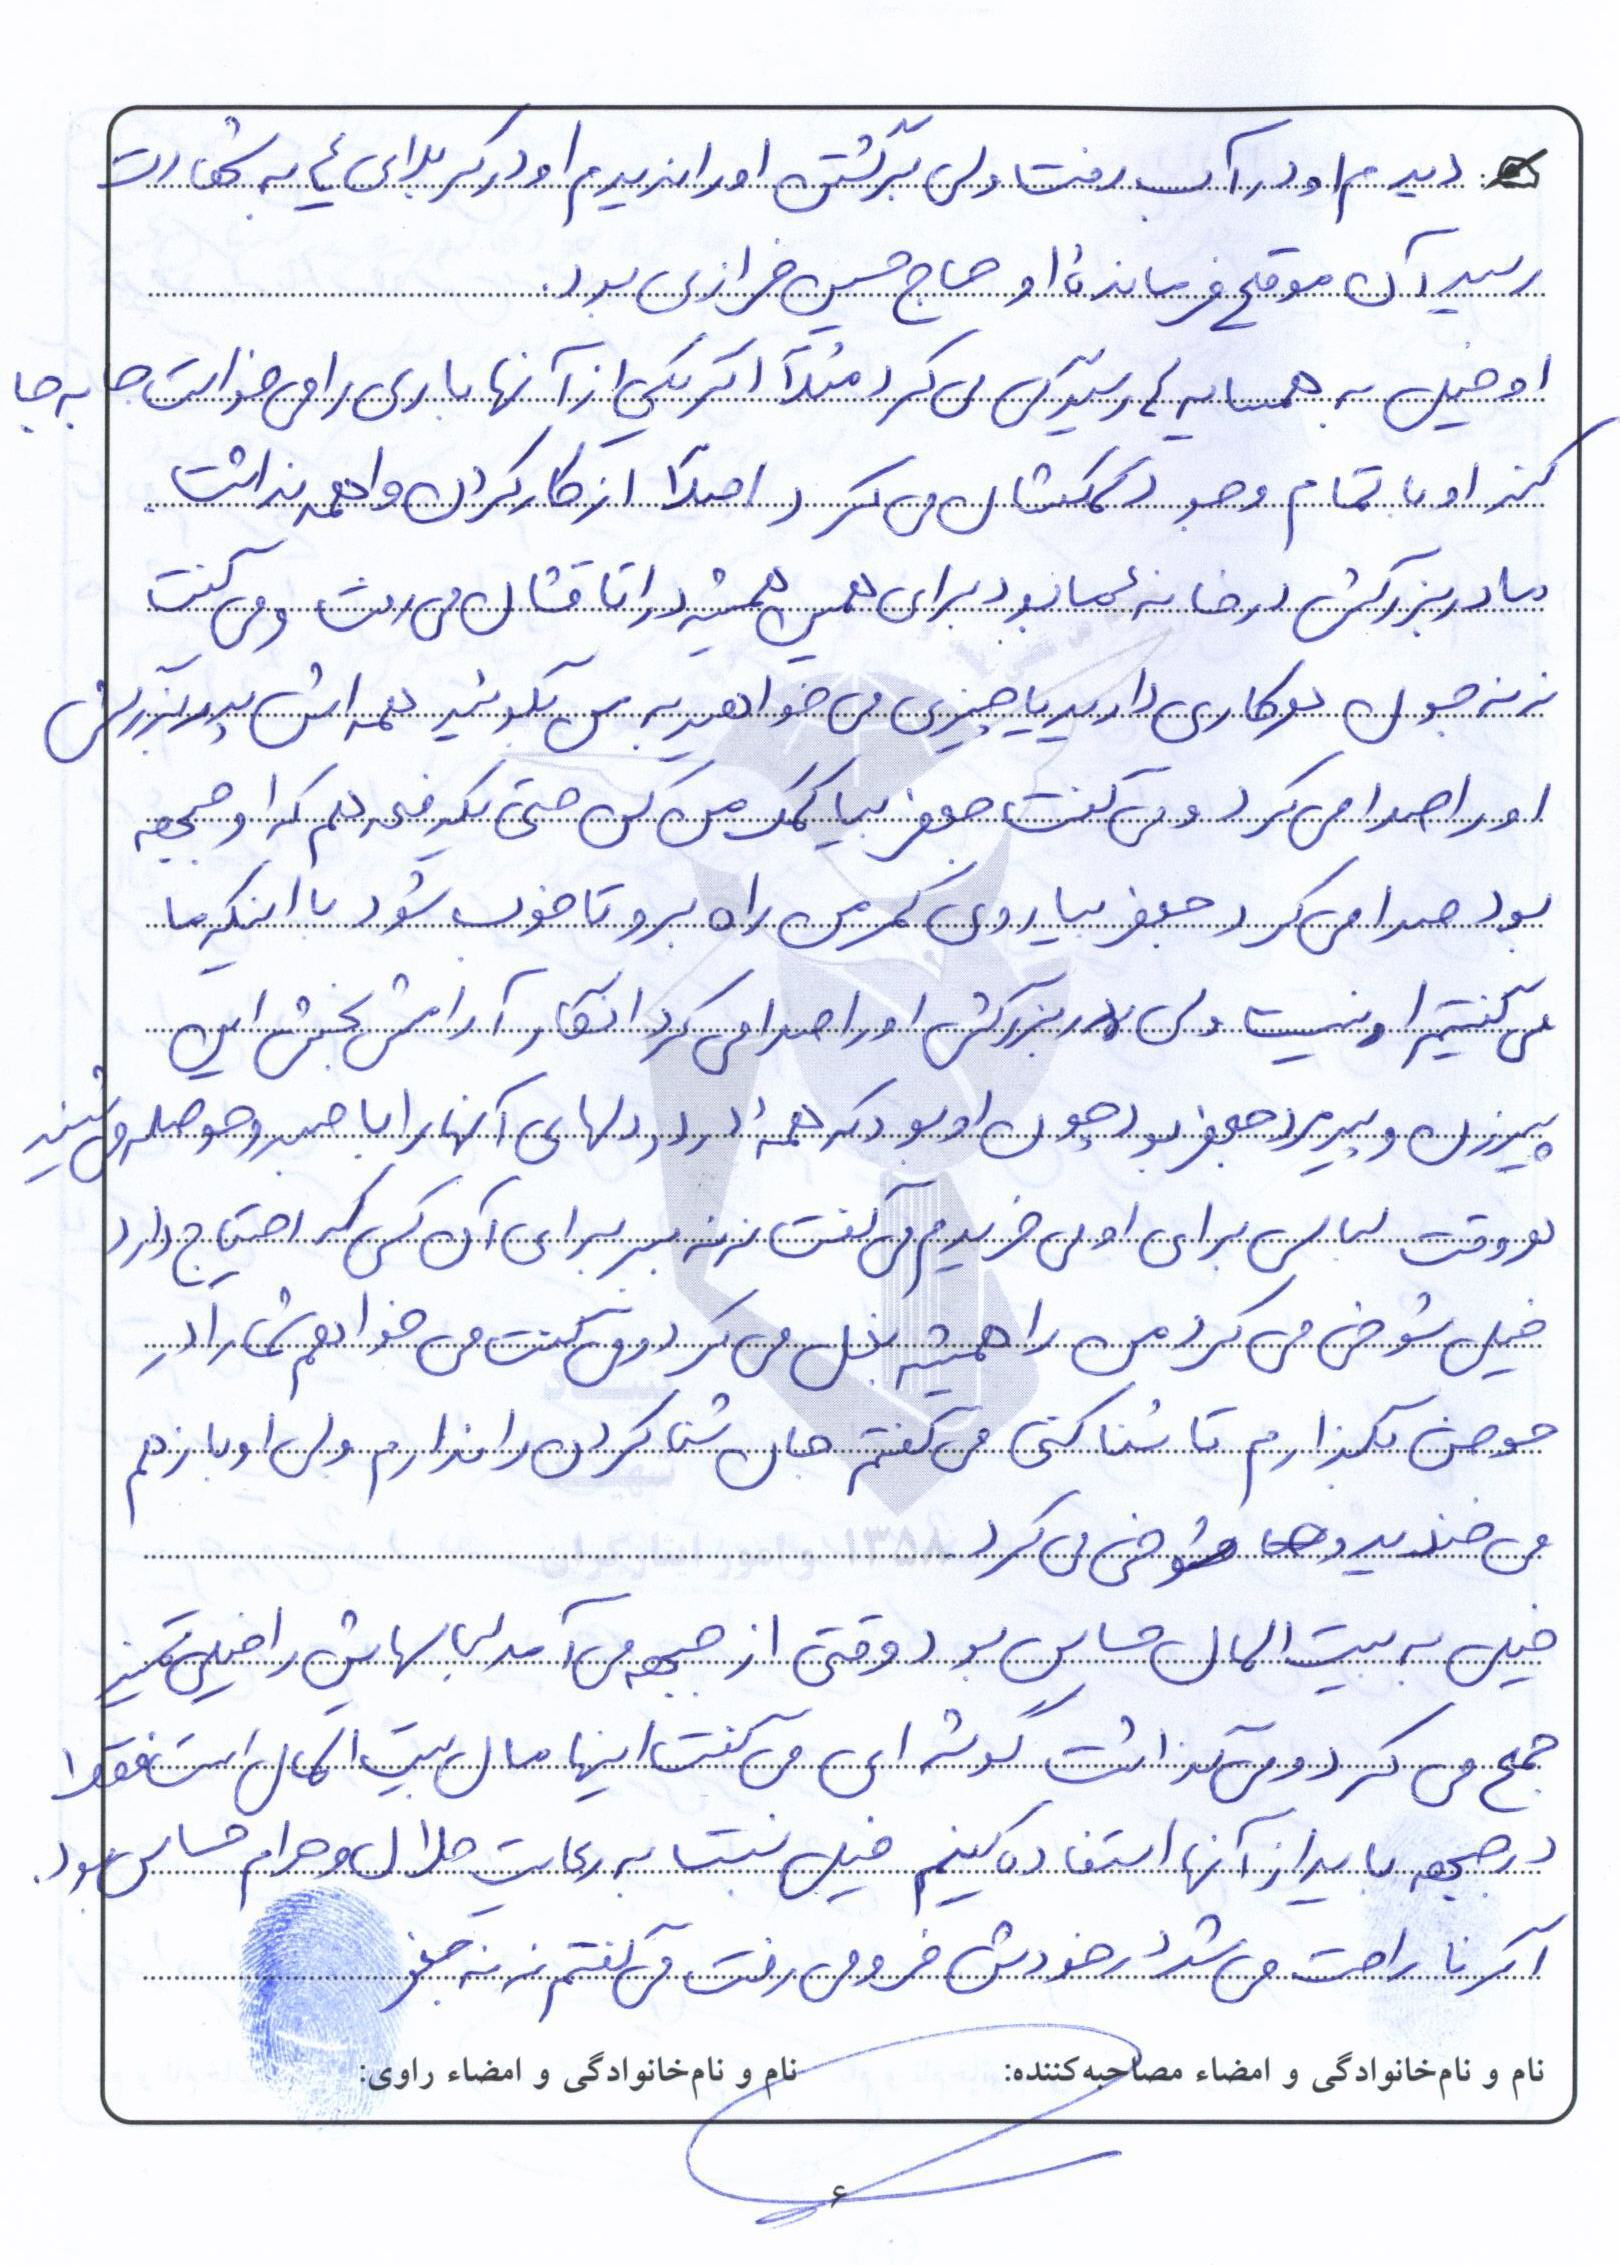 دیدم او در آب رفت ولی برگشتن او را ندیدم او در کربلای ۴ به شهادت
رسید آن موقع فرمانده او حاج حسین خرازی بود.
او خیلی به همسایه ها رسیدگی می کرد مثلاً اگر یکی از آنها باری را می خواست جا به جا
کند او با تمام وجود کمکشان می کرد اصلاً از کار کردن واهمه نداشت.
مادربزرگش در خانه ما بود برای همین همیشه در اتاقشان می رفت و می گفت
ننه جون هر کاری دارید یا چیزی می خواهید به من بگوئید همه اش پدربزرگش
او را صدا می کرد و می گفت جعفر بیا کمک من کن حتی یکدفعه هم که او جبهه
بود صدا می کرد جعفر بیا روی کمر من راه برو تا خوب شود با اینکه ما
می گفتیم او نیست ولی پدربزرگش او را صدا می کرد انگار آرامش بخش این
پیرزن و پیرمرد جعفر بود چون او بود که همه درد دلهای آنها را با صبر و حوصله می شنید
هر وقت لباس برای او می خریدم می گفت ننه ببر برای آن کس که احتیاج دارد
خیلی شوخی می کرد من را همیشه بغل می کرد و می گفت می خواهم شما را در
حوض بگذارم تا شنا کنی می گفتم جان شنا کردن را ندارم ولی او باز هم
می خندید و شوخی می کرد
خیلی به بیت المال حساس بود وقتی از جبهه می آمد لباسهایش را خیلی تمیز
جمع می کرد و می گذاشت گوشه ای می گفت اینها مال بیت المال است فقط
در جبهه باید از آنها استفاده کنیم خیلی نسبت به رعایت حلال و حرام حساس بود.
اگر ناراحت می شد در خودش فرو می رفت می گفتم ننه جعفر
نام و نام‌خانوادگی و امضاء مصاحبه‌کننده: نام و نام‌خانوادگی و امضاء راوی:
۶